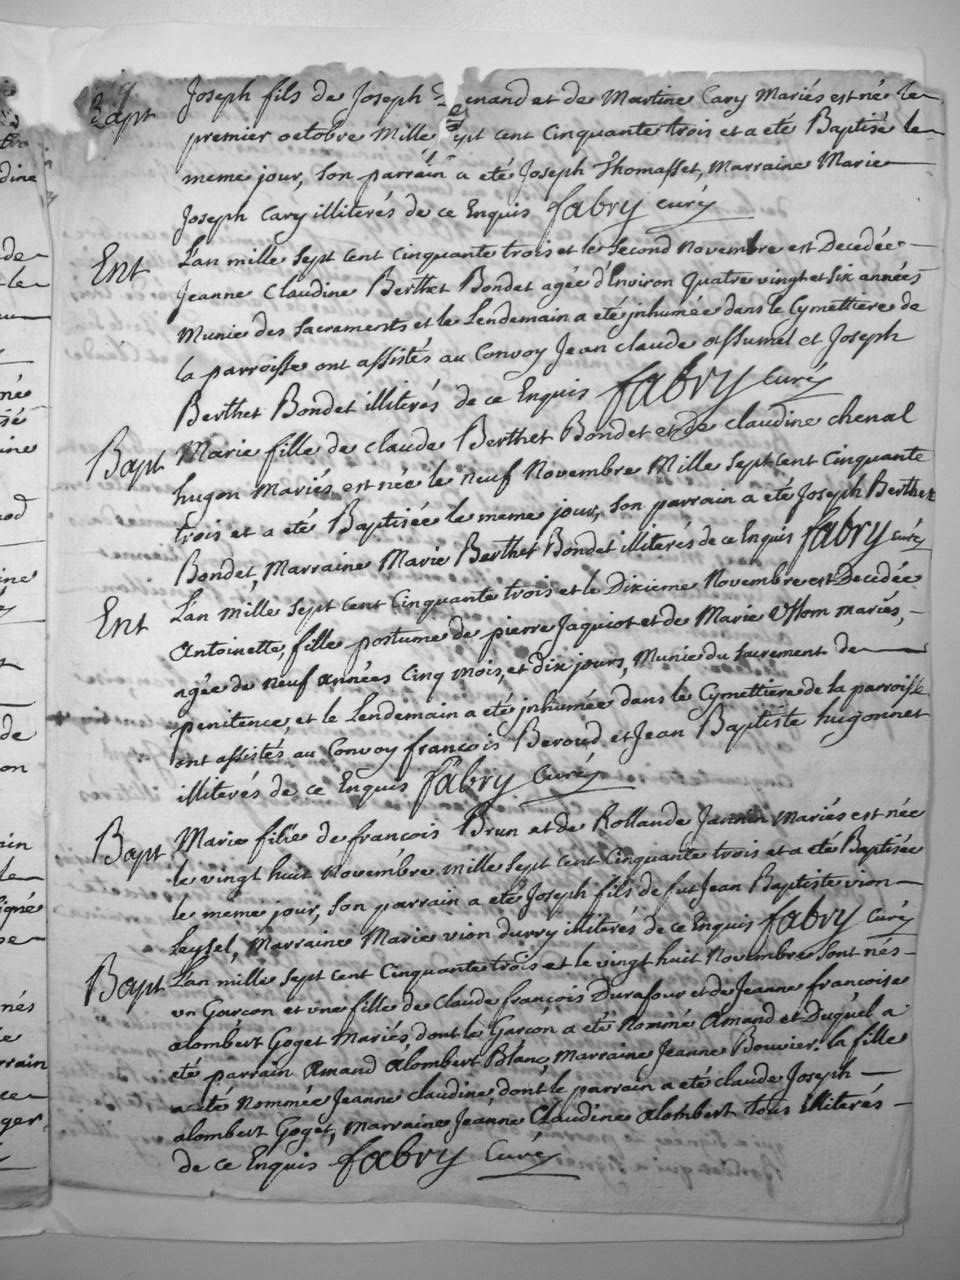 Bapt Joseph fils de Joseph et de Martine Cary Mariés est né le
premier octobre Mille sept cent Cinquante trois et a eté Baptisé le
meme jour, Son parrain a eté Joseph Thomasset, Marraine Marie
Joseph Cary illiterés de ce Enquis fabry curé
Ent Lan mille Sept Cent Cinquante trois et le Second Novembre est Decedée
Jeanne Claudine Berthet Bondet agée d'Environ quatre vingt et Six années
Munie des Sacraments et le Lendemain a eté jnhumée dans le Cymettiere de
la parroisse ont assistés au Convoy Jean claude et Joseph
Berthet Bondet illiterés de ce Enquis fabry Curé
Bapt Marie fille de claude Berthet Bondet et de claudine chenal
hugon Mariés est née le neuf Novembre Mille Sept cent Cinquante
trois et a eté Baptisée le meme jour, Son parrain a eté Joseph Berthet
Bondet, Marraine Marie Berthet Bondet illiterés de ce Enquis fabry curé
Ent Lan mille Sept Cent Cinquante trois et le Dixieme Novembre est Decedée
Antoinette, fille postume de pierre Jaquiot et de Marie mariés,
agée de neuf années Cinq mois, et dix jours, Munie du Sacrement de
penitence et le Lendemain a eté jnhumée dans le Cymettiere de la parroisse
ont assistés au Convoy françois Beroud et Jean Baptiste hugonnet
illiterés de ce Enquis fabry Curé
Bapt Marie fille de françois Brun et de Rollande Jannin Mariés est née
le vingt huit Novembre mille Sept cent Cinquante trois et a eté Baptisée
le meme jour, Son parrain a eté Joseph fils de fut Jean Baptiste vion
Leysel, Marraine Marie vion durry illiterés de ce Enquis fabry Curé
Bapt Lan mille Sept cent Cinquante trois et le vingt huit Novembre Sont nés
un Garcon et vne fille de Claude françois Durafour et de Jeanne francoise
alombert Goget Mariés, dont le Garcon a eté Nommé Amand et Duquel a
eté parrain Amand Alombert Blanc, Marraine Jeanne Bouvier. la fille
a eté Nommée Jeanne claudine, dont le parrain a eté claude Joseph
alombert Goget, Marraine Jeanne Claudine Alombert tous illiterés
de ce Enquis fabry Curé